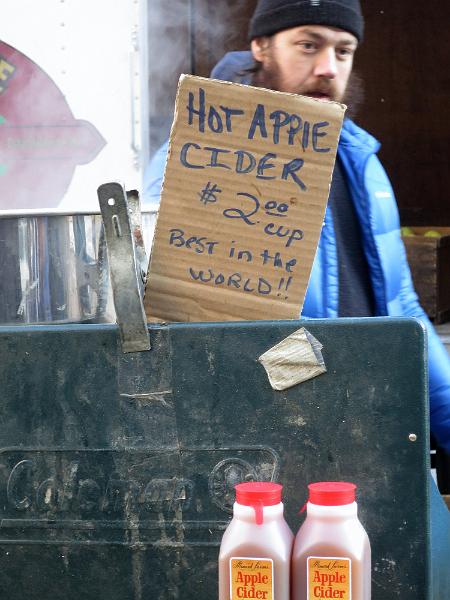 HOT APPLE
CIDER
$ 2.00 cup
BEST in the
WORLD!!
Coleman
Apple
Cider
Apple
Cider